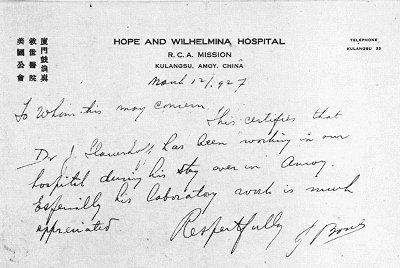 廈門鼓浪嶼
救世醫院
美國公會
HOPE AND WILHELMINA HOSPITAL
R. C. A. MISSION
KULANGSU, AMOY, CHINA
TELEPHONE
KULANGSU 33
March 12/1927
To Whom this may concern
This certifies that
Dr J. Slauerhoff has been working in our
hospital during his stay over in Amoy.
Especially his laboratory work is much
appreciated
Respectfully